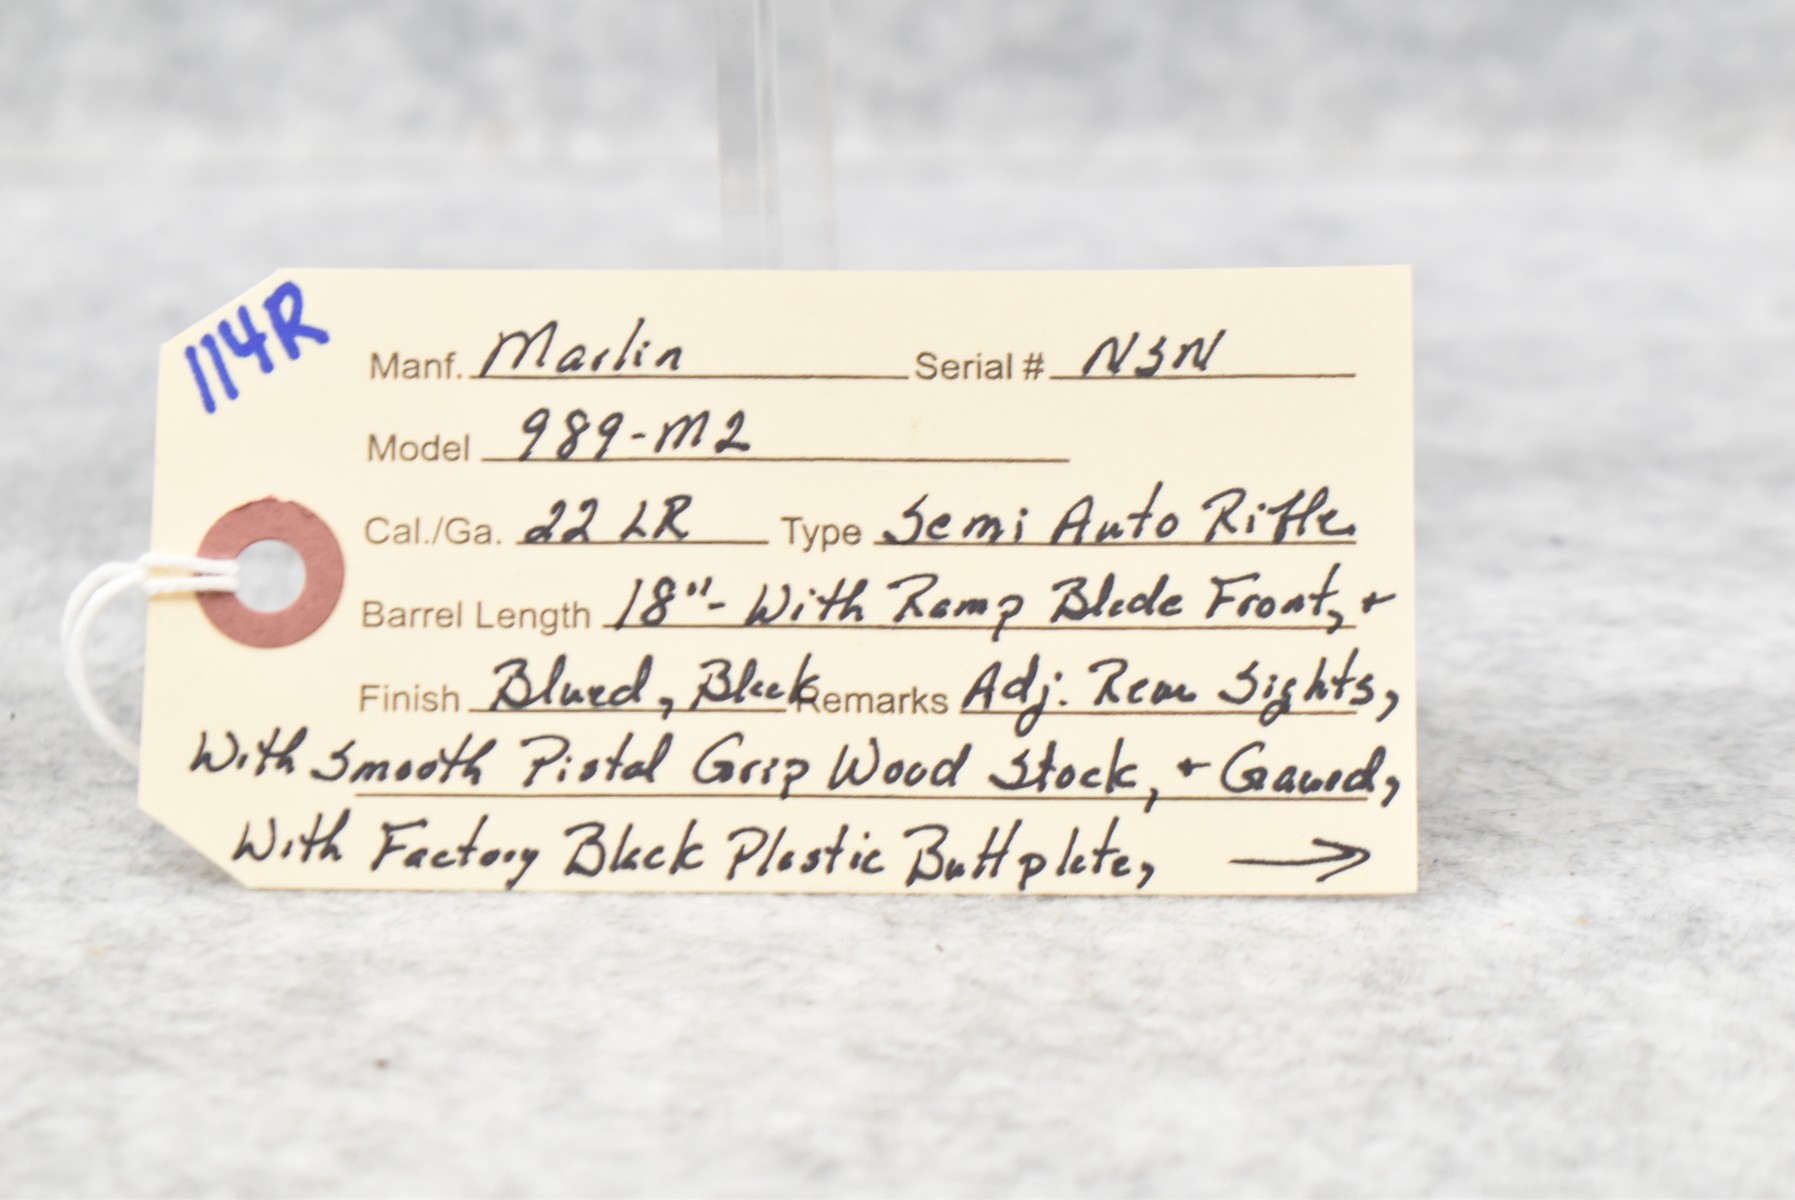 114R
Manf. Marlin Serial # NSN
Model 989-M2
Cal./Ga. 22 LR Type Semi Auto Rifle
Barrel Length 18"- With Ramp Blade Front, +
Finish Blued, Black Remarks Adj. Rear Sights,
With Smooth Pistal Grip Wood Stock, +
With Factory Black Plastic Buttplate, →